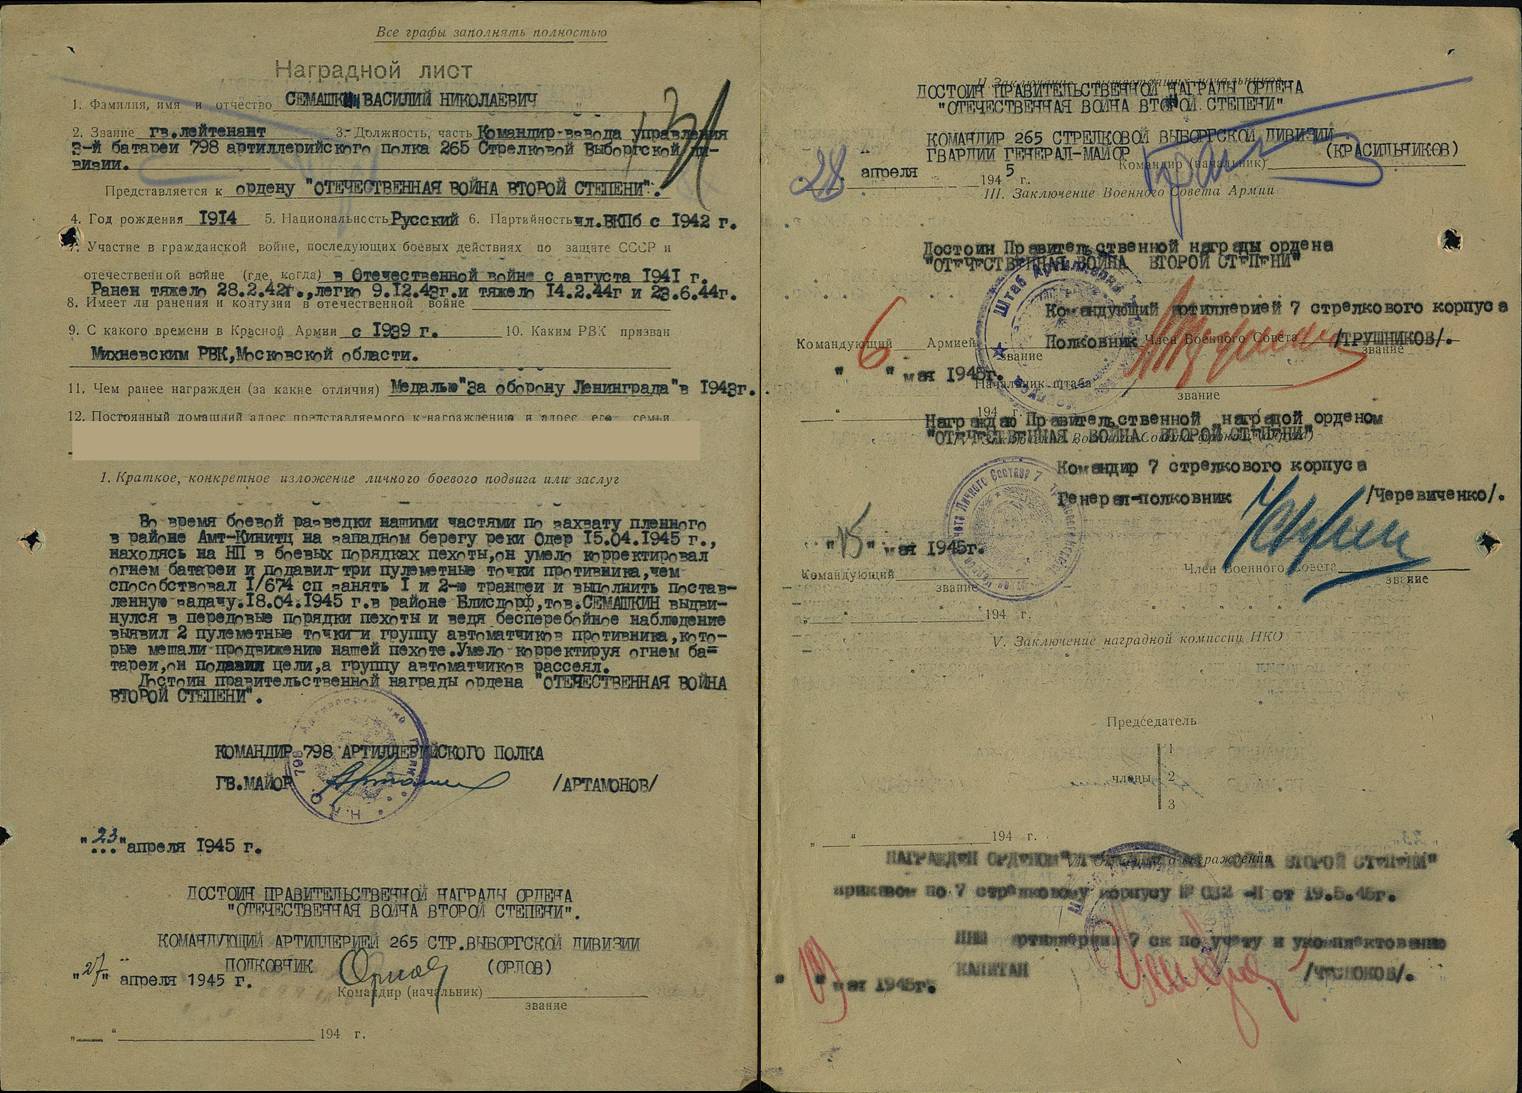 Все графы заполнять полностью
Наградной лист
1. Фамилия, имя и отчество СЕМАШКИН ВАСИЛИЙ НИКОЛАЕВИЧ
2. Звание гв.лейтенант 3. Должность, часть Командир взвода управления
3-й батареи 798 артиллерийского полка 265 Стрелковой Выборгской ди-
визии.
Представляется к ордену "ОТЕЧЕСТВЕННАЯ ВОЙНА ВТОРОЙ СТЕПЕНИ".
4. Год рождения 1914 5. Национальность Русский 6. Партийность чл.ВКПб с 1942 г.
7. Участие в гражданской войне, последующих боевых действиях по защите СССР и
отечественной войне (где, когда) в Отечественной войне с августа 1941 г.
Ранен тяжело 28.2.42г.,легко 9.12.43г.и тяжело 14.2.44г и 23.6.44г.
8. Имеет ли ранения и контузии в отечественной войне
9. С какого времени в Красной Армии с 1939 г. 10. Каким РВК призван
Михневским РВК,Московской области.
11. Чем ранее награжден (за какие отличия) Медалью"За оборону Ленинграда"в 1943г.
12. Постоянный домашний адрес представляемого к награждению и адрес его семьи
1. Краткое, конкретное изложение личного боевого подвига или заслуг
Во время боевой разведки нашими частями по захвату пленного
в районе Амт-Кинитц на западном берегу реки Одер 15.04.1945 г.,
находясь на НП в боевых порядках пехоты,он умело корректировал
огнем батареи и подавил три пулеметные точки противника,чем
способствовал 1/674 сп занять 1 и 2-ю траншеи и выполнить постав-
ленную задачу.18.04.1945 г.в районе Блисдорф,тов.СЕМАШКИН выдви-
нулся в передовые порядки пехоты и ведя бесперебойное наблюдение
выявил 2 пулеметные точки и группу автоматчиков противника,кото-
рые мешали продвижению нашей пехоте.Умело корректируя огнем ба-
тареи,он подавил цели,а группу автоматчиков рассеял.
Достоин правительственной награды ордена "ОТЕЧЕСТВЕННАЯ ВОЙНА
ВТОРОЙ СТЕПЕНИ".
КОМАНДИР 798 АРТИЛЛЕРИЙСКОГО ПОЛКА
ГВ.МАЙОР /АРТАМОНОВ/
"23" апреля 1945 г.
ДОСТОИН ПРАВИТЕЛЬСТВЕННОЙ НАГРАДЫ ОРДЕНА
"ОТЕЧЕСТВЕННАЯ ВОЙНА ВТОРОЙ СТЕПЕНИ".
КОМАНДУЮЩИЙ АРТИЛЛЕРИЕЙ 265 СТР.ВЫБОРГСКОЙ ДИВИЗИИ
ПОЛКОВНИК (ОРЛОВ)
"27" апреля 1945 г.
Командир (начальник)
звание
" " 194 г.
II Заключение вышестоящих начальников
ДОСТОИН ПРАВИТЕЛЬСТВЕННОЙ НАГРАДЫ ОРДЕНА
"ОТЕЧЕСТВЕННАЯ ВОЙНА ВТОРОЙ СТЕПЕНИ"
КОМАНДИР 265 СТРЕЛКОВОЙ ВЫБОРГСКОЙ ДИВИЗИИ
ГВАРДИИ ГЕНЕРАЛ-МАЙОР (КРАСИЛЬНИКОВ)
Командир (начальник)
28 апреля 1945 г.
III. Заключение Военного Совета Армии
Достоин Правительственной награды ордена
"ОТЕЧЕСТВЕННАЯ ВОЙНА ВТОРОЙ СТЕПЕНИ"
Командующий артиллерией 7 стрелкового корпуса
Полковник /ТРУШНИКОВ/.
Командующий Армией Член Военного Совета
звание звание
"6" мая 1945г.
Начальник штаба
звание
" 194 г.
Награждаю Правительственной наградой орденом
"ОТЕЧЕСТВЕННАЯ ВОЙНА ВТОРОЙ СТЕПЕНИ"
Командир 7 стрелкового корпуса
Генерал-полковник /Черевиченко/.
"15" мая 1945г.
Командующий Член Военного Совета
звание звание
" 194 г.
V. Заключение наградной комиссии НКО
Председатель
члены
1
2
3
" 194 г.
НАГРАЖДЕН ОРДЕНОМ "ОТЕЧЕСТВЕННАЯ ВОЙНА ВТОРОЙ СТЕПЕНИ"
приказом по 7 стрелковому корпусу № 032-Н от 19.5.45г.
ПНШ артиллерии 7 ск по учету и укомплектованию
КАПИТАН /ЧЕСНОКОВ/.
"19" мая 1945г.